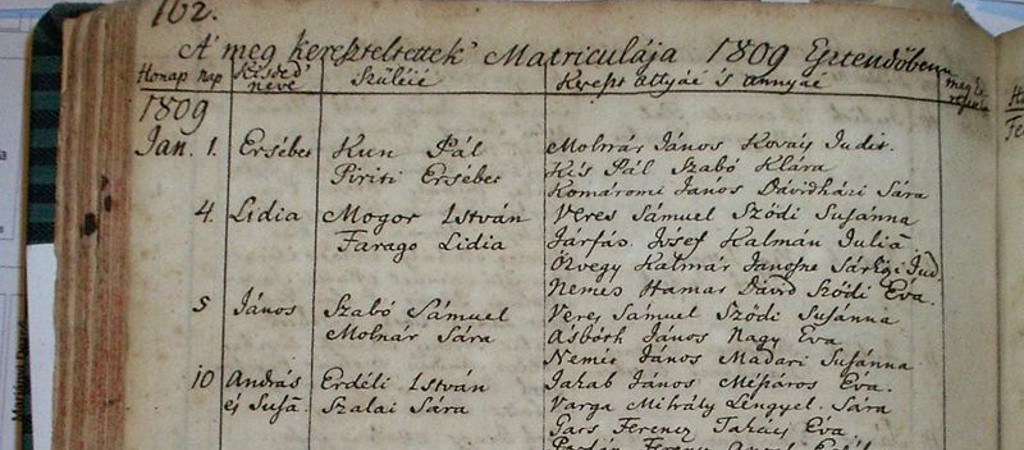 162.
A' meg kereszteltettek' Matriculája 1809 Esztendőben
Honap nap Kisded' neve Szüléié Kereszt attyáé 's annyáé
1809
Jan. 1. Ersébet Kun Pál Molnár János Kováts Judit.
Piriti Ersébet Kis Pál Szabó Klára
Komáromi János Dávidházi Sára
4. Lidia Mogor István Veres Sámuel Sződi Susánna
Farago Lidia Járfás Jósef Kalmán Juliā
Özvegy Kalmár Janosne Sárközi Jud
Nemes Hamar Dávid Sződi Éva.
5 János Szabó Sámuel Veres Sámuel Sződi Susánna
Molnár Sára Asbóth János Nagy Eva
Nemes János Madari Susánna
10 András Erdéli István Jakab János Mészáros Éva.
és Susā. Szalai Sára Varga Mihály Lengyel Sára
Gars Ferencz Takács Eva